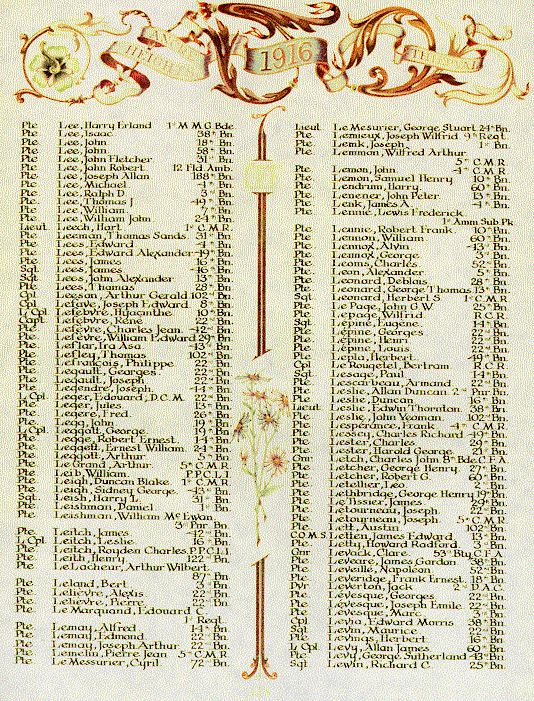 ANCRE HEIGHTS
1916
Pte Lee, Harry Erland 1st M M G Bde
Pte. Lee, Isaac 38th Bn.
Pte. Lee, John 18th Bn.
Pte. Lee, John 58th Bn.
Pte. Lee, John Fletcher 31st Bn.
Pte. Lee, John Robert 12 Fld Amb.
Pte. Lee, Joseph Allan 188th Bn.
Pte. Lee, Michael 4th Bn.
Pte. Lee, Ralph D. 3rd Bn.
Pte. Lee, Thomas J 49th Bn.
Pte. Lee, William 7th Bn.
Pte. Lee, William John 24th Bn.
Lieut. Leech, Hart 1st C.M.R.
Pte. Leeman, Thomas Sands. 31st Bn.
Pte. Lees, Edward 4th Bn.
Pte. Lees, Edward Alexander 49th Bn.
Pte. Lees, James 16th Bn.
Sgt. Lees, James 46th Bn.
Sgt. Lees, John Alexander 13th Bn.
Pte. Lees, Thomas 28th Bn.
Cpl Leeson, Arthur Gerald 102nd Bn.
Cpl. Lefave, Joseph Edward 8th Bn.
L/Cpl. Lefebvre, Hyacinthe 10th Bn.
Capt. Lefebvre, René 22nd Bn.
Pte. Lefèvre, Charles Jean 42nd Bn.
Pte. Lefèvre, William Edward 29th Bn.
Pte. Leflar, Ira Asa 43rd Bn.
Pte. Lefley, Thomas 102nd Bn.
Pte. Lefrançois, Philippe 22nd Bn.
Pte. Legault, Georges 22nd Bn.
Pte. Legault, Joseph 22nd Bn.
Pte. Legendre, Joseph 14th Bn.
L/Cpl. Léger, Edouard; D.C.M. 22nd Bn.
Pte. Léger, Jules 13th Bn.
Pte. Legere, Fred. 26th Bn.
Pte. Legg, John 19th Bn.
L/Cpl. Leggott, George 19th Bn.
Pte. Legge, Robert Ernest. 14th Bn.
Pte. Leggett, Ernest William 24th Bn.
Pte. Legott, Arthur 5th Bn.
Pte. Le Grand, Arthur 5th C.M.R.
Pte. Leib, William P.P.C.L.I.
Pte. Leigh, Duncan Blake. 1st C.M.R.
Pte. Leigh, Sidney George 43rd Bn.
Sgt. Leish, Harry I. 31st Bn.
Pte. Leishman, Daniel 1st Bn.
Pte. Leishman, William McEwan
3rd Pnr Bn.
Pte. Leitch, James 42nd Bn.
L/Cpl. Leitch, Leslie 16th Bn.
Pte. Leitch, Royden Charles. P.P.C.L.I.
Pte. Leith, Henry 122nd Bn.
Pte. LeLacheur, Arthur Wilbert
87th Bn.
Pte. Leland, Bert 3rd Bn.
Pte. Lelièvre, Alexis 22nd Bn.
Pte. Lelièvre, Pierre 22nd Bn.
Pte. Le Marquand, Edouard C.
1st Regt.
Pte. Lemay, Alfred 14th Bn.
Pte. Lemay, Edmond 22nd Bn.
Pte. Lemay, Joseph Arthur 22nd Bn.
Pte. Lemelin, Pierre Jean 5th C.M.R.
Pte. Le Messurier, Cyril. 72nd Bn.
Lieut. Le Mesurier, George Stuart 24th Bn.
Pte. Lemieux, Joseph Wilfrid 9th Regt.
Pte. Lemk, Joseph 1st Bn.
Pte. Lemmon, Wilfred Arthur
5th C.M.R.
Pte. Lemon, John 4th C.M.R.
Pte. Lemon, Samuel Henry 10th Bn.
Pte. Lendrum, Harry 60th Bn.
Pte. Lenener, John Peter 13th Bn.
Pte. Lenk, James A 4th Bn.
Pte. Lennie, Lewis Frederick
1st Amm Sub Pk
Pte. Lennie, Robert Frank. 10th Bn.
Pte. Lennon, William 60th Bn.
Pte. Lennox, Alvin 43rd Bn.
Pte. Lennox, George 3rd Bn.
Pte. Leoms, Charles 52nd Bn.
Pte. Leon, Alexander 5th Bn.
Pte. Leonard, Deblois 28th Bn.
Pte. Leonard, George Thomas 13th Bn.
Sgt. Leonard, Herbert S 1st C.M.R
Pte. Le Page, John G.W. 25th Bn.
Pte. Lepage, Wilfrid R.C.R.
Sgt. Lépine, Eugène 14th Bn.
Pte. Lépine, Georges 22nd Bn.
Pte. Lépine, Henri 22nd Bn.
Pte. Lépine, Louis 22nd Bn.
Pte. Lepla, Herbert 49th Bn.
Cpl Le Rougetel, Bertram R.C.R.
Sgt. Lesage, Paul 14th Bn.
Pte. Lescarbeau, Armand 22nd Bn.
Pte. Leslie, Allan Duncan 2nd Pnr Bn.
Pte. Leslie, Duncan 16th Bn.
Lieut. Leslie, Edwin Thornton 38th Bn.
Pte. Leslie, John Yeoman 102nd Bn.
Pte. Lesperance, Frank 4th C.M.R.
Pte. Lessey, Charles Richard 49th Bn.
Pte. Lester, Charles 29th Bn.
Pte. Lester, Harold George 21st Bn.
Gnr. Letch, Charles John 5th Bde. C.F.A.
Pte. Letcher, George Henry 27th Bn.
Pte. Letcher, Robert G. 60th Bn.
Pte. Letellier, Leo 2nd Bn.
Pte. Lethbridge, George Henry 19th Bn.
Pte. Le Tissier, James 29th Bn.
Pte. Létourneau, Joseph 22nd Bn.
Pte. Létourneau, Joseph 5th C.M.R.
Pte. Lett, Austin 102nd Bn.
C.Q.M.S. Letten, James Edward 13th Bn.
Pte. Letty, Howard Radford 3rd Bn.
Gnr. Levack, Clare 53rd Bty. C.F.A.
Pte. Leveare, James Gordon 38th Bn.
Pte. Leveille, Napoleon 52nd Bn.
Pte. Leveridge, Frank Ernest 18th Bn.
Dvr. Leverton, Jack 2nd D.A.C.
Pte. Lévesque, Georges 22nd Bn.
Pte. Lévesque, Joseph Emile 22nd Bn.
Pte. Levesque, Marc 3rd Bn.
Cpl. Levia, Edward Morris 58th Bn.
Sgt. Levin, Maurice 22nd Bn.
Pte. Levings, Herbert 16th Bn.
L/Cpl. Levy, Allan James 60th Bn.
Pte. Levy, George Sutherland 43rd Bn.
Sgt Lewin, Richard C. 25th Bn.